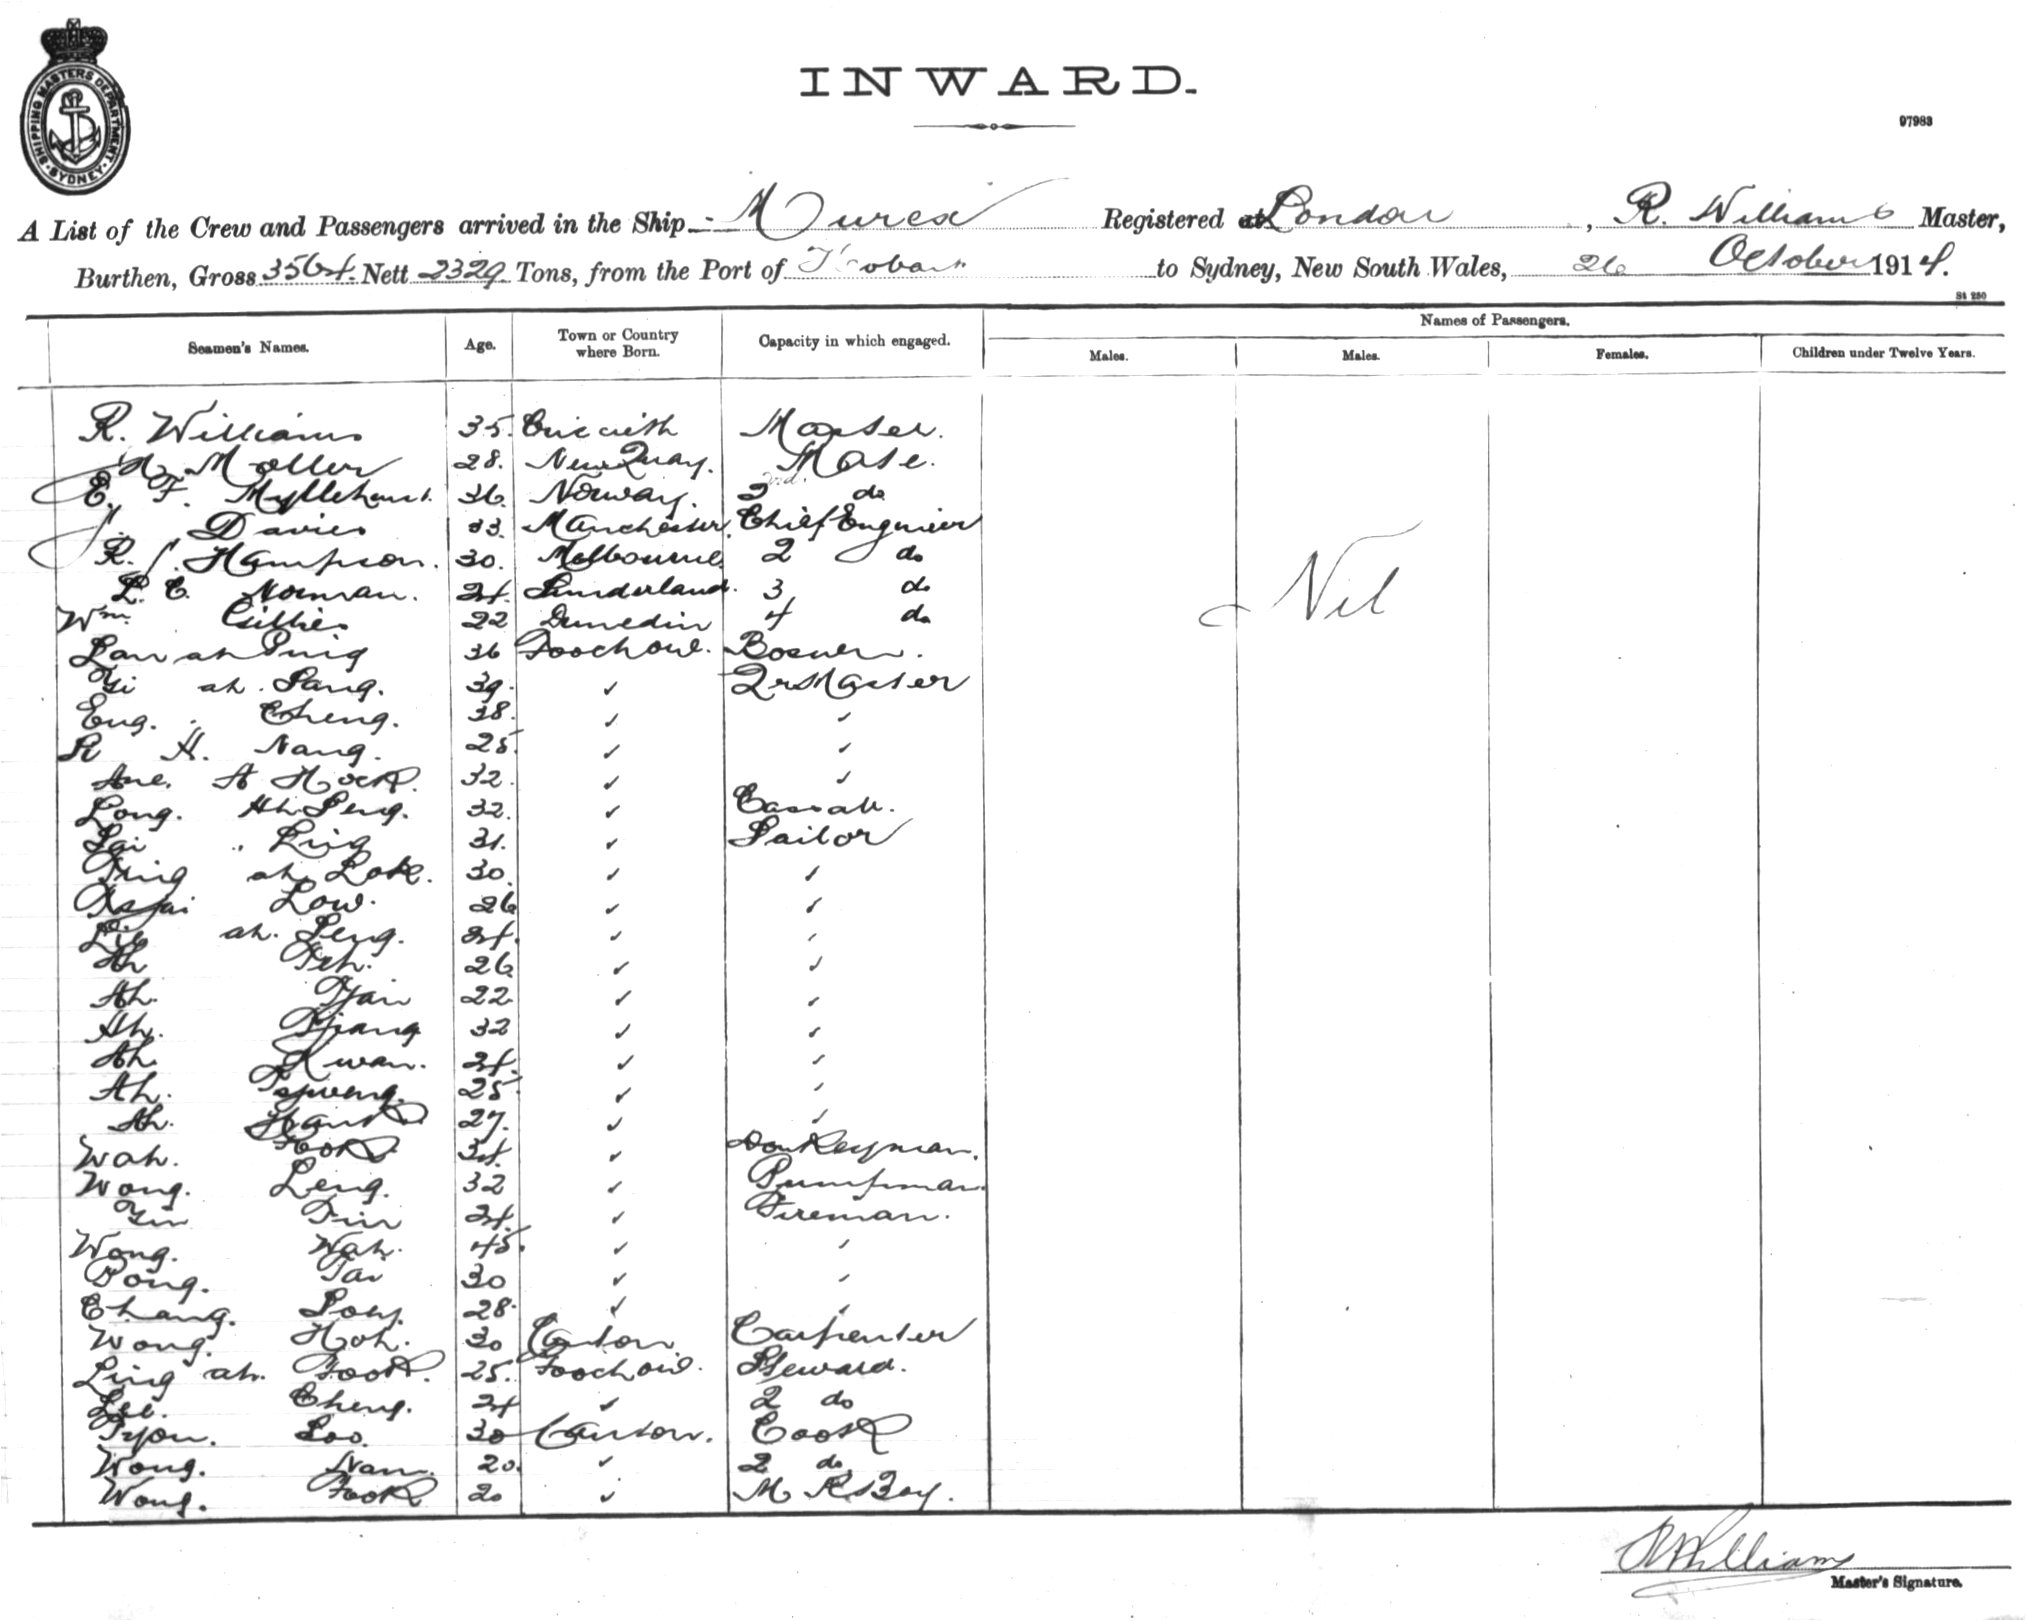 SHIPPING MASTERS DEPARTMENT · SYDNEY ·
INWARD.
97983
A List of the Crew and Passengers arrived in the Ship Murex Registered at London, R. Williams Master,
Burthen, Gross 3564 Nett 2329 Tons, from the Port of Hobart to Sydney, New South Wales, 26 October 1914.
St 250
Seamen's Names. Age. Town or Country where Born. Capacity in which engaged. Names of Passengers.
Males. Males. Females. Children under Twelve Years.
R. Williams 35. Criccieth Master.
Moller 28. New Quay. Mate.
E. F. 36. Norway. 2 do
J. Davies 33. Manchester. Chief Engineer
R. J. Hampson. 30. Melbourne 2 do
L. E. Norman. 24. Sunderland. 3 do
Nil
Wm. Gillies 22 Dunedin 4 do
Lan ah Ping 36 Foochow. Bosun.
Yi ah. Sang. 39. ✓ QrMaster
Eng. " Cheng. 38. ✓ ✓
R H. Nang. 25. ✓ ✓
A Hock. 32. ✓ ✓
Long. Ah Seng. 32. ✓ Cassab.
Sai " Ling 31. ✓ Sailor
Ting ah Lok. 30. ✓ ✓
Low. 26 ✓ ✓
ah. Seng. 24. ✓ ✓
Ah 26 ✓ ✓
Ah. Tjai 22 ✓ ✓
Ah. Tjiang 32 ✓ ✓
Ah Kwan. 24. ✓ ✓
Ah. 25 ✓ ✓
Ah. 27. ✓ ✓
Wah. Fook 34. ✓ Donkeyman.
Wong. Leng. 32 ✓ Pumpman.
Yin Tin 24. ✓ Fireman.
Wong. Wah. 45. ✓ ✓
Pong. Tai 30 ✓ ✓
Chang. 28. ✓ ✓
Wong. Hoh. 30 Canton. Carpenter
Ling ah. Fook. 25. Foochow. Steward.
Lee. Cheng. 24 ✓ 2 do
Tyon. Loo. 30 Canton. Cook
Wong. Nam. 20. ✓ 2 do
Wong. Fook 20 ✓ M R Boy.
R Williams
Master's Signature.